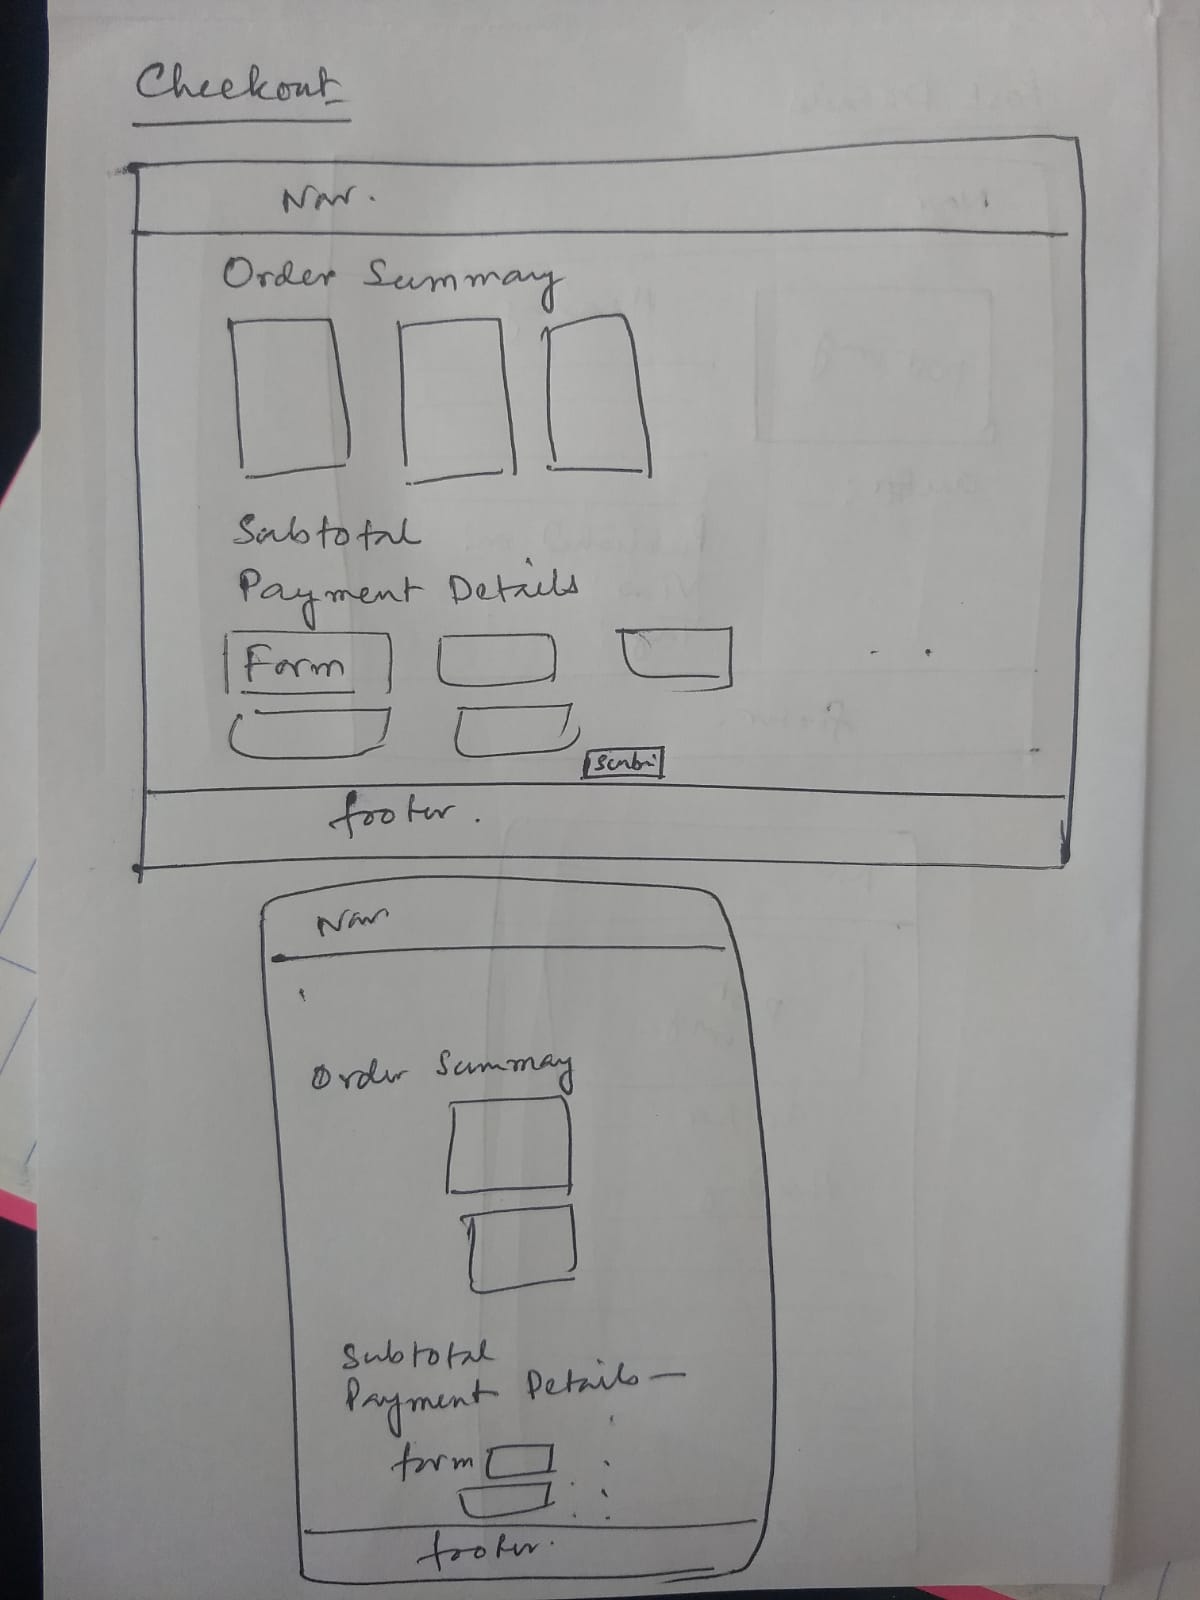 Checkout
Nav.
Order Summary
Subtotal
Payment Details
Form
footer.
Nav
Order Summay
Subtotal
Payment Details
form
footer.